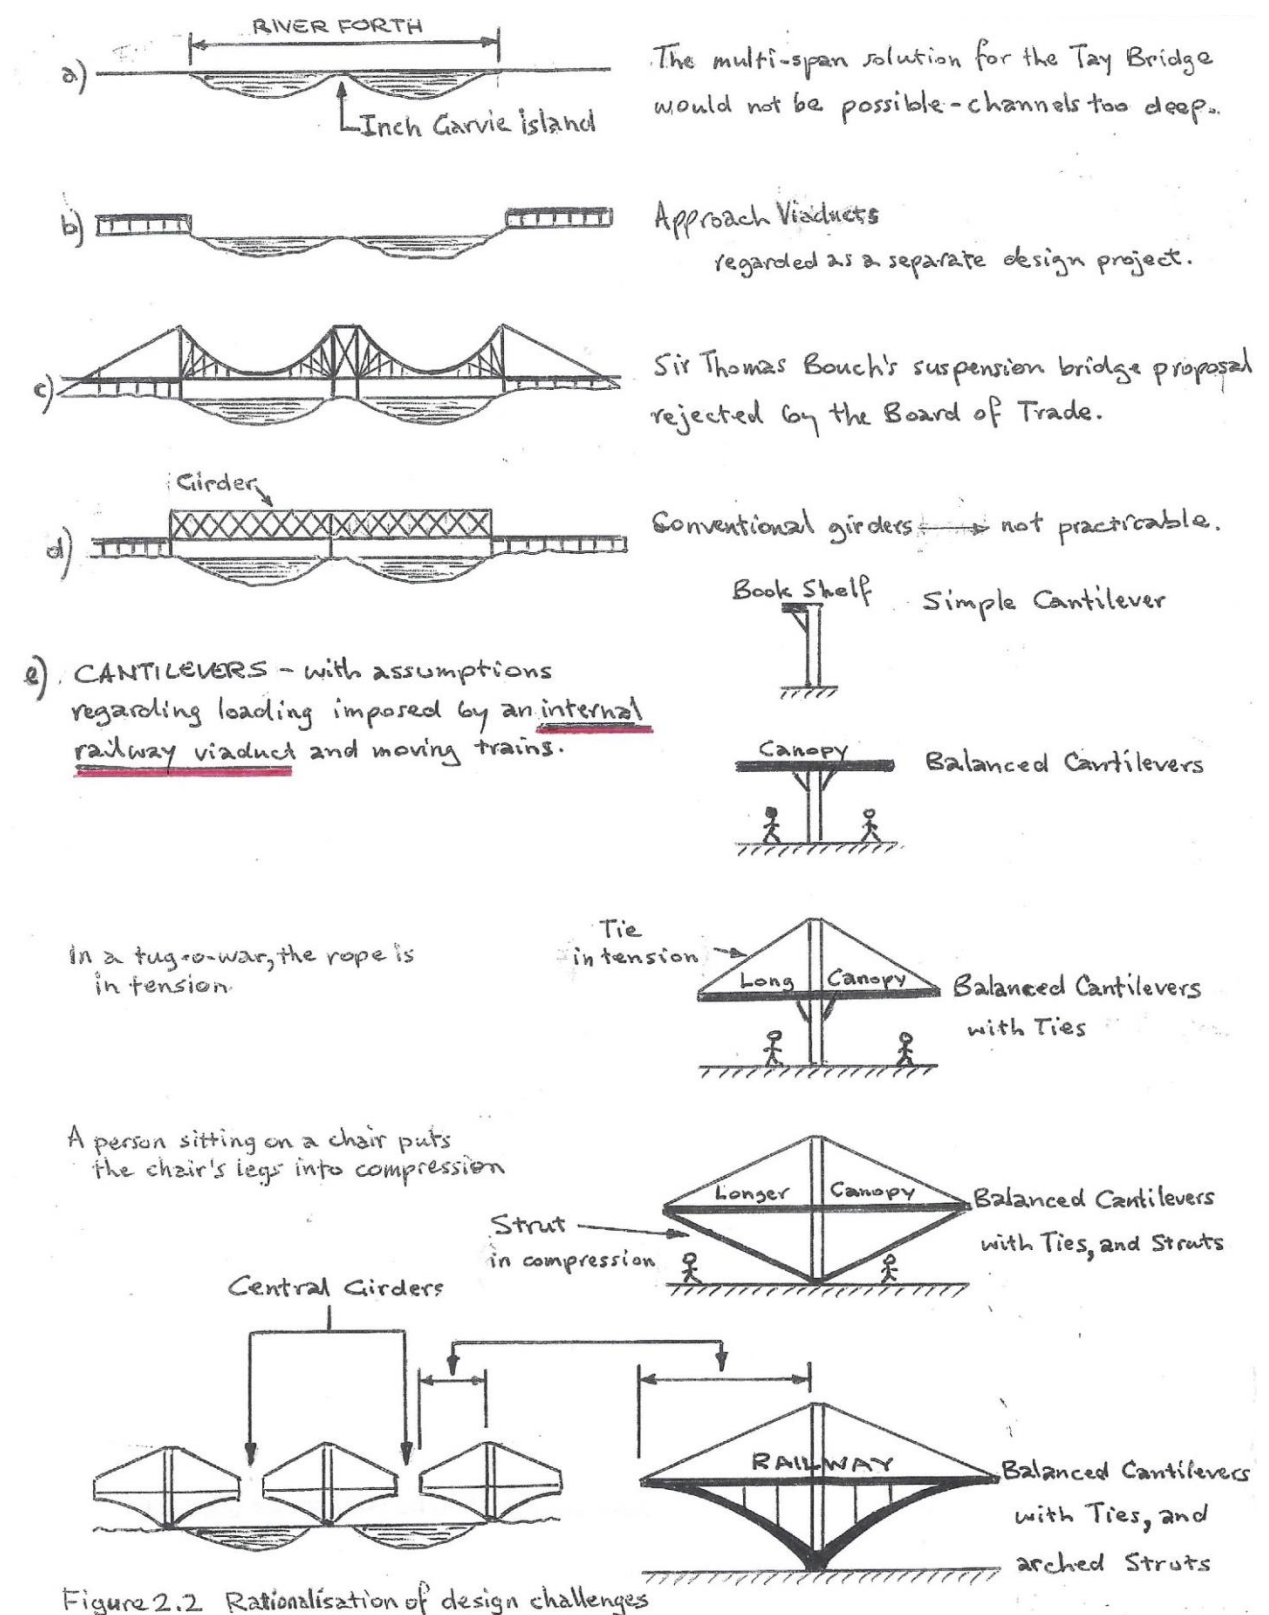 RIVER FORTH
a)
Inch Garvie island
The multi-span solution for the Tay Bridge
would not be possible - channels too deep.
b)
Approach Viaducts
regarded as a separate design project.
c)
Sir Thomas Bouch's suspension bridge proposal
rejected by the Board of Trade.
Girder
d)
Conventional girders → not practicable.
Book Shelf
Simple Cantilever
e). CANTILEVERS - with assumptions
regarding loading imposed by an internal
railway viaduct and moving trains.
Canopy
Balanced Cantilevers
In a tug-o-war, the rope is
in tension
Tie
in tension
Long Canopy
Balanced Cantilevers
with Ties
A person sitting on a chair puts
the chair's legs into compression
Longer Canopy
Strut
in compression
Balanced Cantilevers
with Ties, and Struts
Central Girders
RAILWAY
Balanced Cantilevers
with Ties, and
arched Struts
Figure 2.2 Rationalisation of design challenges